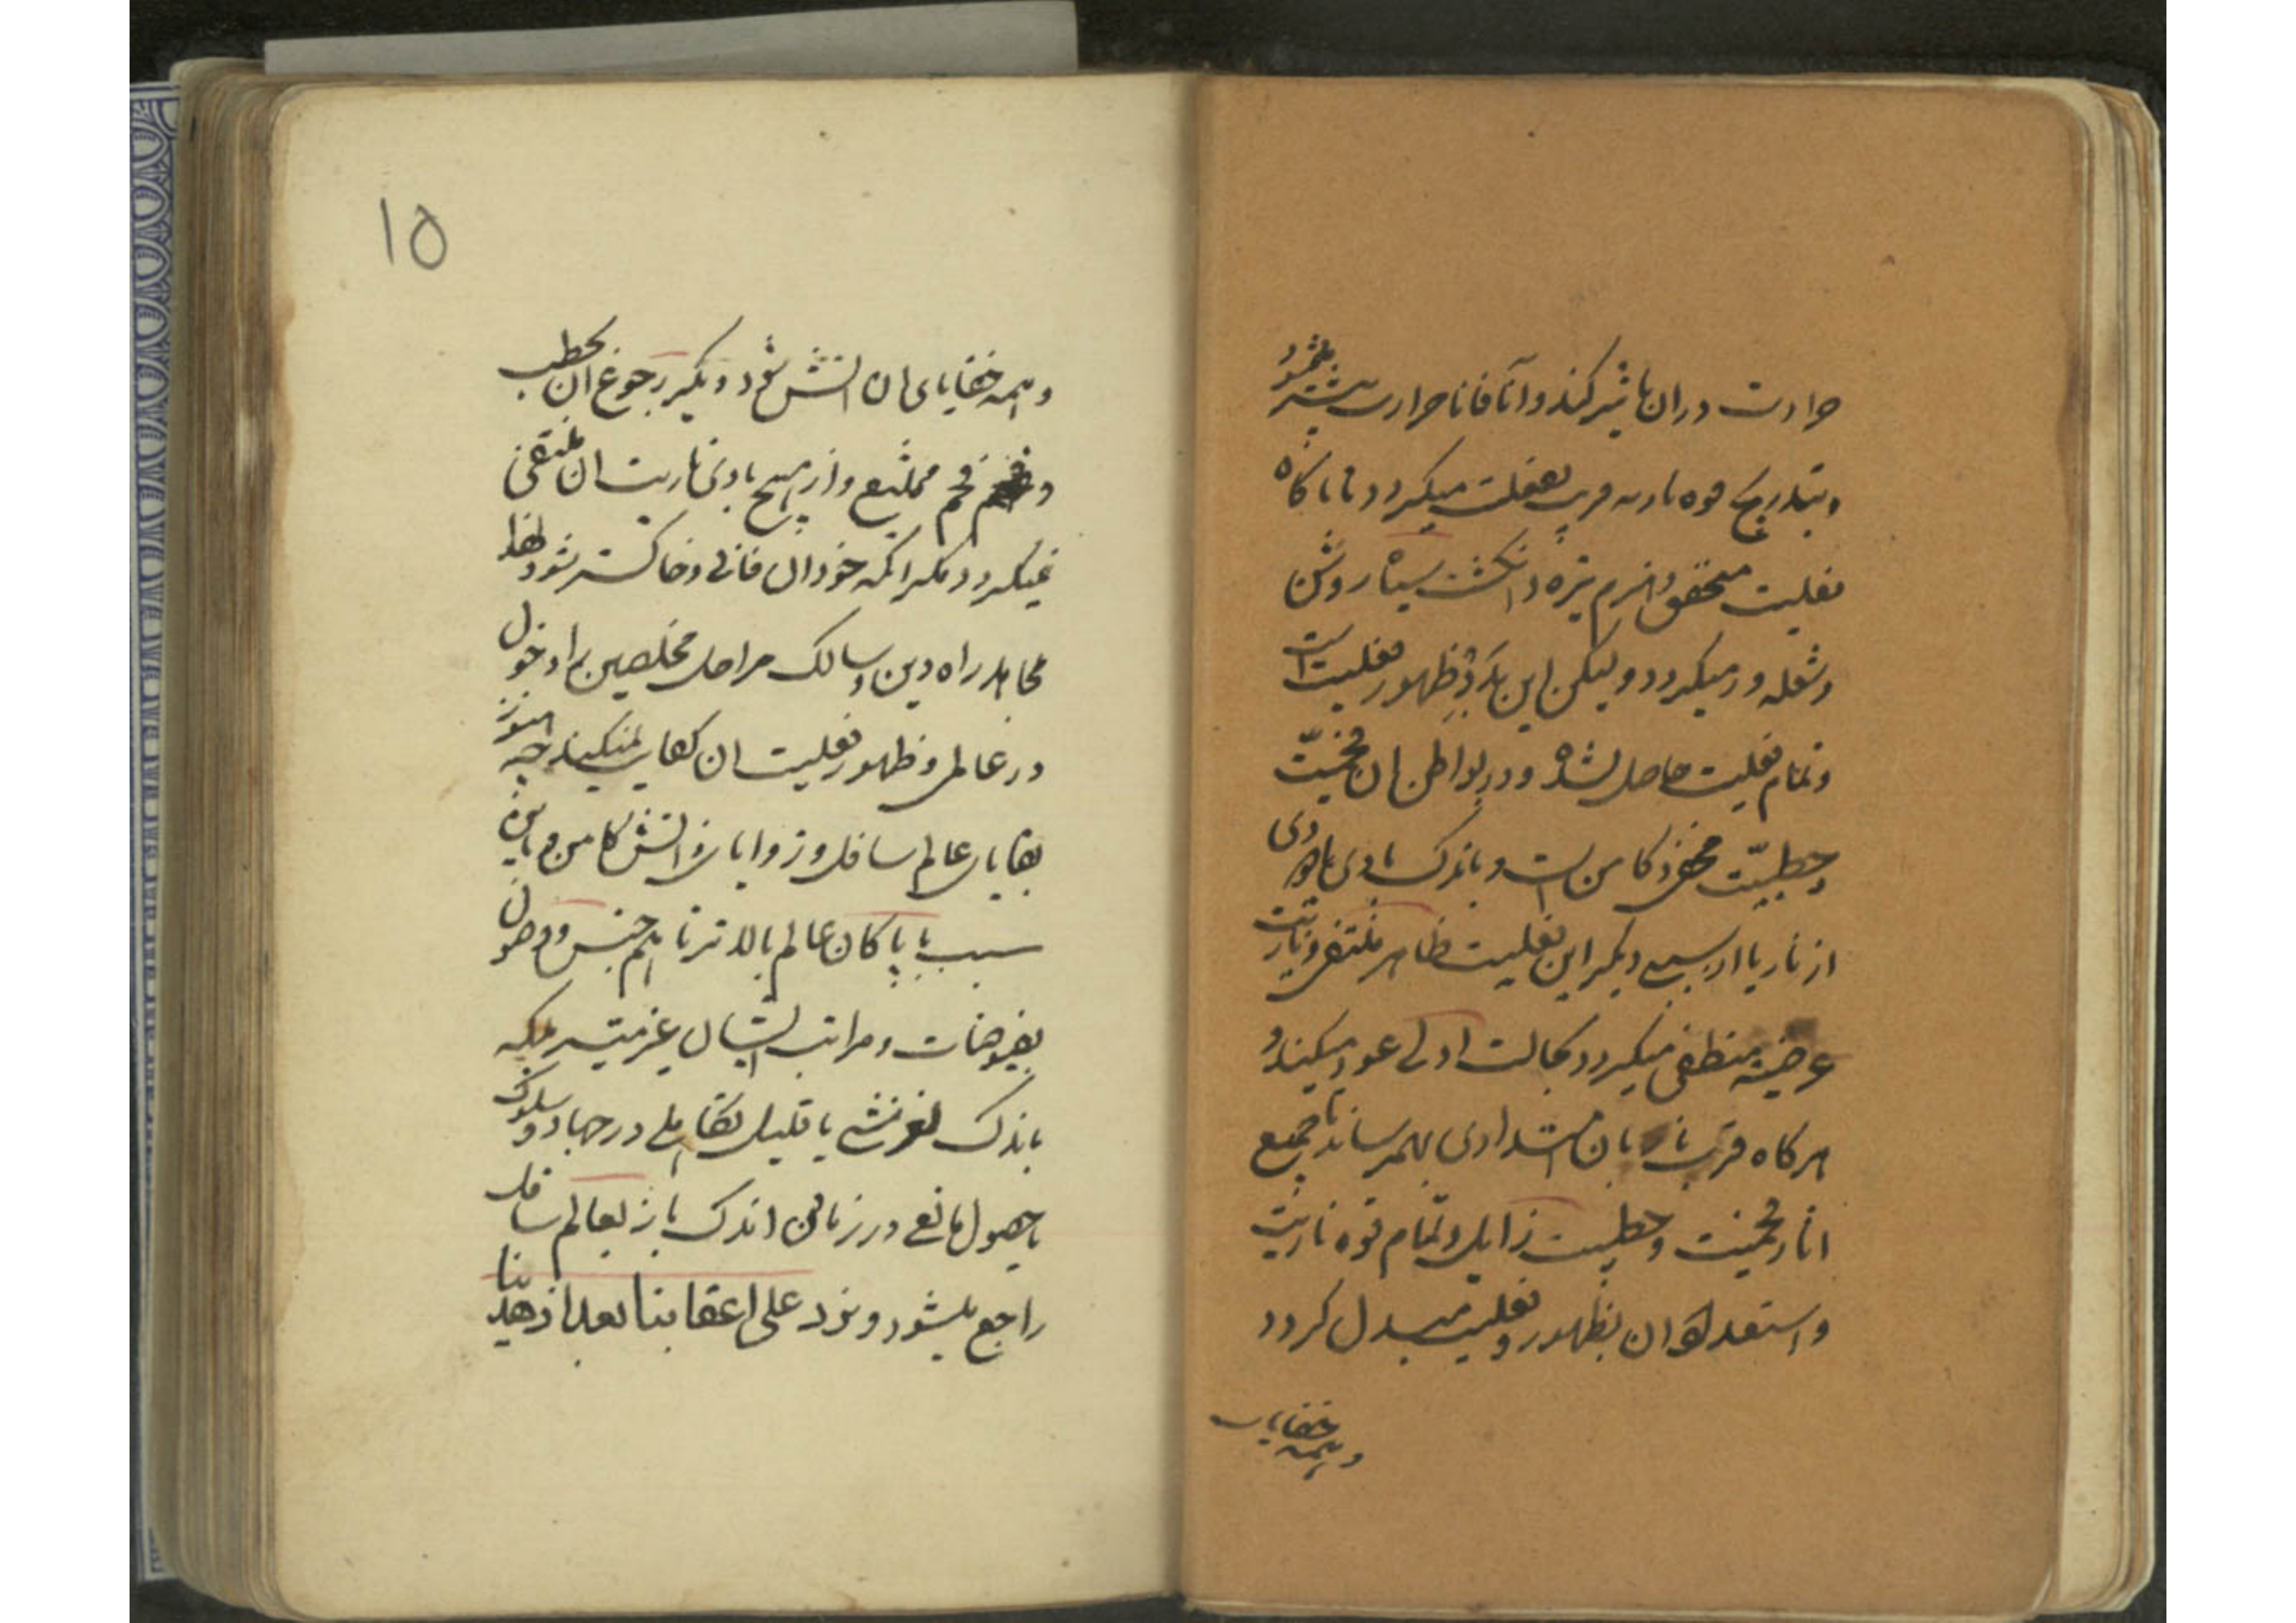 حرارت دران تاثیر کند و آنا فانا حرارت بیشتر میشود
و بتدریج قوه ناریه قریب بفعلیت میکردد تا ناکاه
فعلیت متحقق و هیزم تیره و انکشت سیاه روشن
و شعله ور میکردد ولیکن این بدو ظهور فعلیت است
و تمام فعلیت حاصل نشده و در بواطن ان فحمیت
و حطبیت مخفی و کامن است و باندک بادی یا دوری
از نار یا از سببی دیکر این فعلیت ظاهر منتفی و ناریت
عرضیه منطفی میکردد و بحالت اولی عود میکند و
هرکاه قرب نار بان اشتدادی بهمرساند تا جمیع
اثار فحمیت و حطبیت زایل و تمام قوه ناریت
و استعداد ان بظهور و فعلیت مبدل کردد
و همه خفایای
۱۵
و همه خفایای ان اتش شود دیکر رجوع ان بحطب
و فحم ممتنع و از هیچ بادی ناریت ان منتفی
نمیکردد مکر انکه خود ان فانی و خاکستر شود لهذا
مجاهد راه دین و سالک مراحل مخلصین را دخول
در عالمی و ظهور فعلیت ان کفایت نمیکند چه هنوز
بقایای عالم سافل و زوایای ذاتش کامن و باین
سبب با پاکان عالم بالاتر نا هم جنس و وصول
بفیوضات و مراتب ایشان غیر میسر بلکه
باندک لغزشی یا قلیل تکاهلی در جهاد و سلوک
یا حصول مانعی در زمانی اندک باز بعالم سافل
راجع میشود و نرد علی اعقابنا بعد اذ هدینا